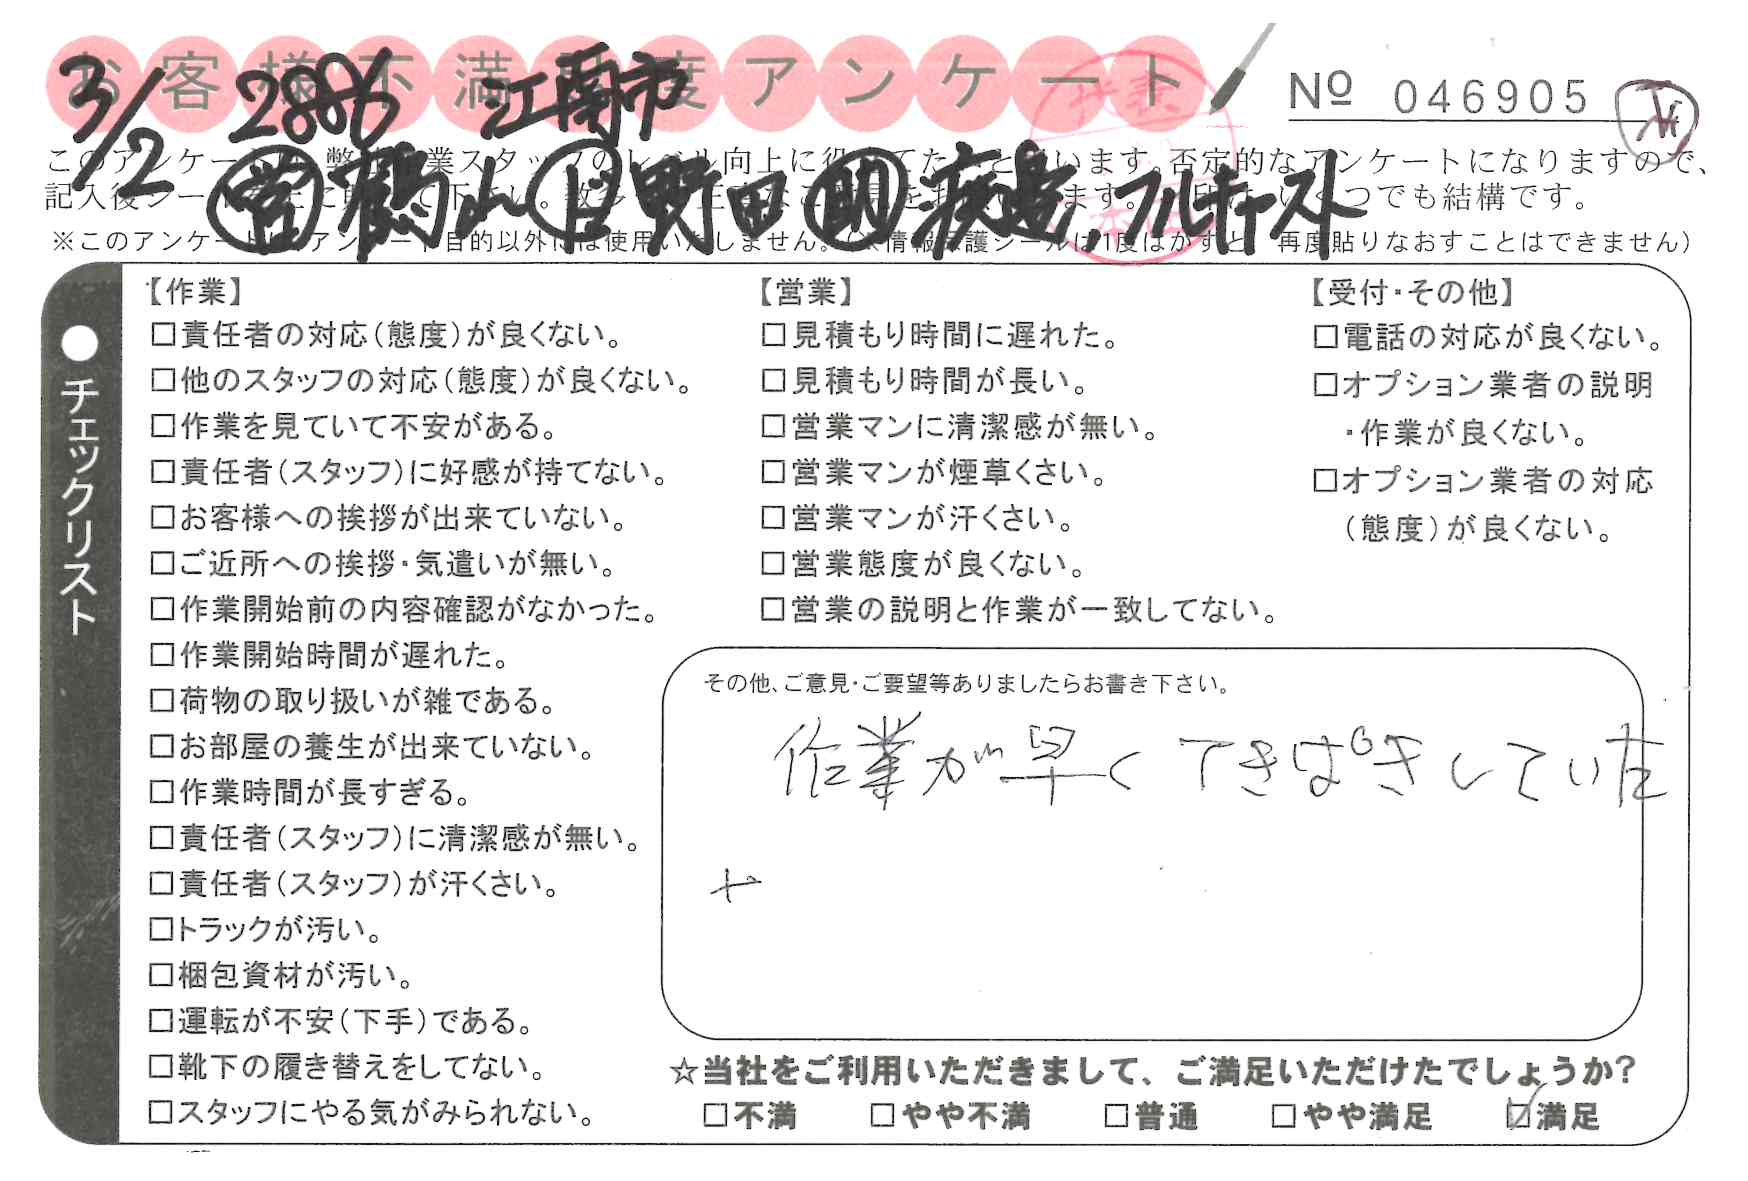 お客様不満足度アンケート
№ 046905
3/2 2886 江南市
営 鶴山 ド 野田 助 フルキャスト
このアンケートは、弊社作業スタッフのレベル向上に役立てたいと思います。否定的なアンケートになりますので、
記入後シールを上に貼って下さい。
※このアンケートは、アンケート目的以外には使用いたしません。(※情報保護シールは1度はがすと、再度貼りなおすことはできません)
●チェックリスト
【作業】
□責任者の対応(態度)が良くない。
□他のスタッフの対応(態度)が良くない。
□作業を見ていて不安がある。
□責任者(スタッフ)に好感が持てない。
□お客様への挨拶が出来ていない。
□ご近所への挨拶・気遣いが無い。
□作業開始前の内容確認がなかった。
□作業開始時間が遅れた。
□荷物の取り扱いが雑である。
□お部屋の養生が出来ていない。
□作業時間が長すぎる。
□責任者(スタッフ)に清潔感が無い。
□責任者(スタッフ)が汗くさい。
□トラックが汚い。
□梱包資材が汚い。
□運転が不安(下手)である。
□靴下の履き替えをしてない。
□スタッフにやる気がみられない。
【営業】
□見積もり時間に遅れた。
□見積もり時間が長い。
□営業マンに清潔感が無い。
□営業マンが煙草くさい。
□営業マンが汗くさい。
□営業態度が良くない。
□営業の説明と作業が一致してない。
【受付・その他】
□電話の対応が良くない。
□オプション業者の説明
・作業が良くない。
□オプション業者の対応
(態度)が良くない。
その他、ご意見・ご要望等ありましたらお書き下さい。
作業が早くてきぱきしていた
☆当社をご利用いただきまして、ご満足いただけたでしょうか?
□不満 □やや不満 □普通 □やや満足 ☑満足